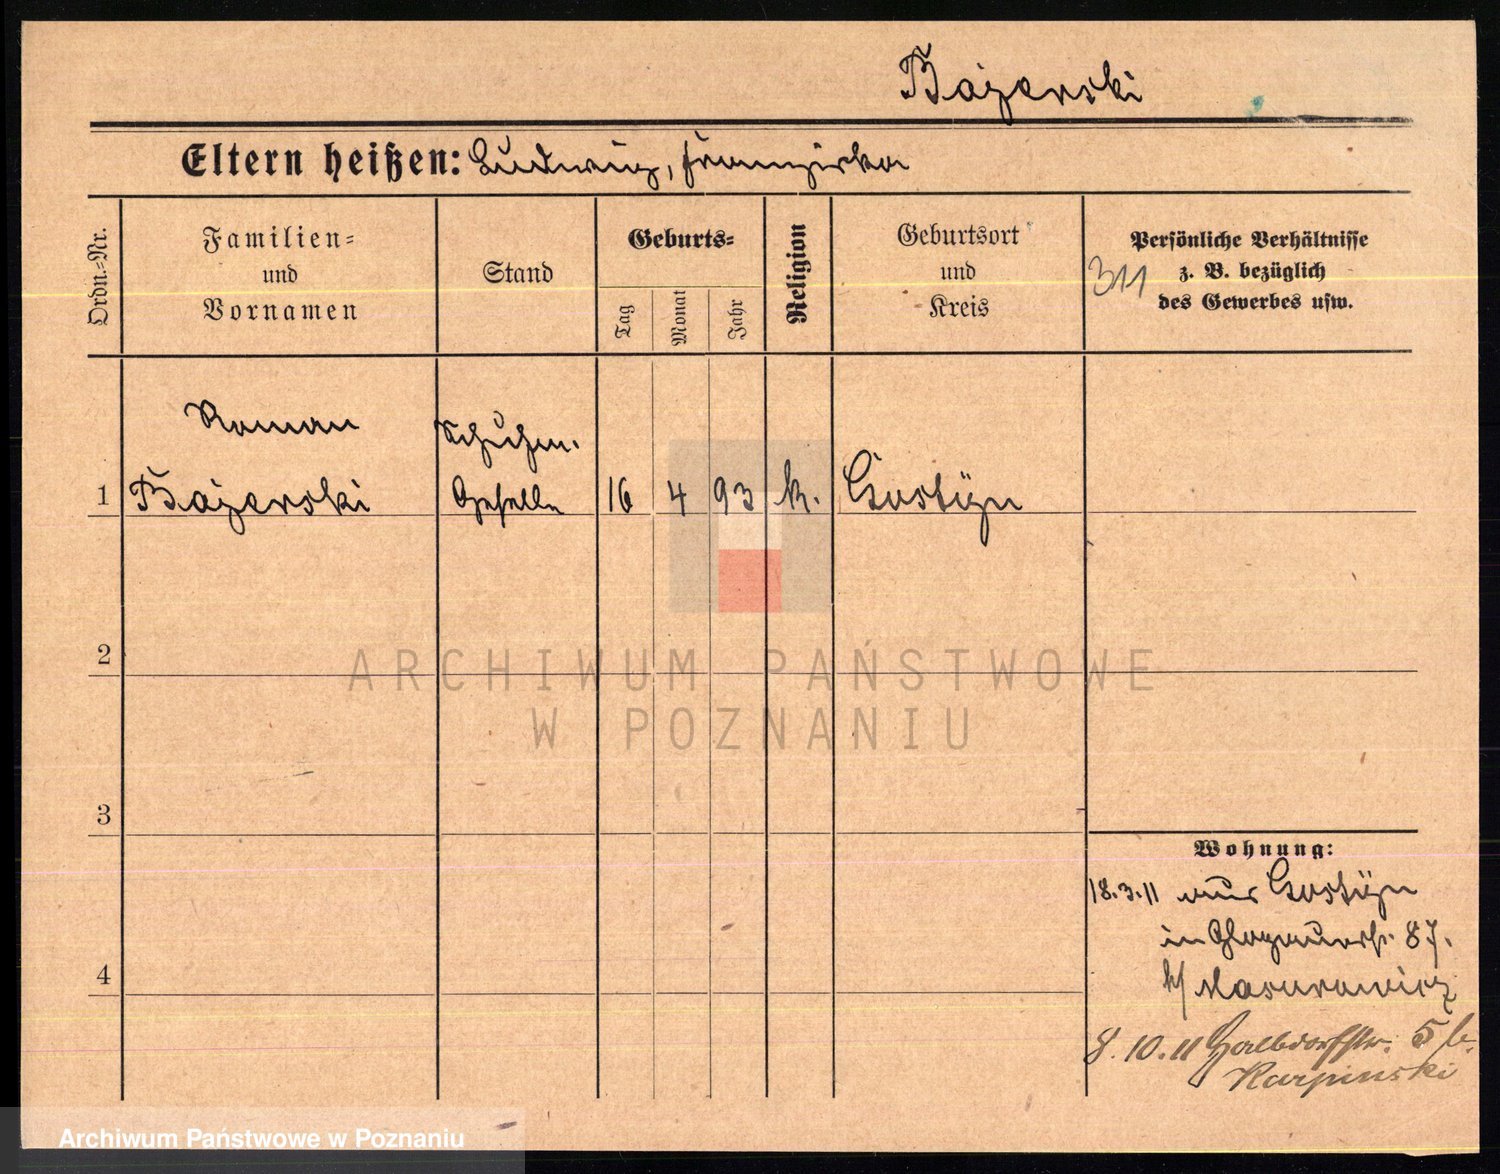 Bajerski
Eltern heißen: Ludwig, Franziska
Ordn.-Nr.
Familien-
und
Vornamen
Stand
Geburts-
Tag
Monat
Jahr
Religion
Geburtsort
und
Kreis
Persönliche Verhältnisse
z. B. bezüglich
des Gewerbes usw.
311
Roman
Schuhm.
1 Bajerski Geselle 16 4 93 k. Gostÿn
2
ARCHIWUM PAŃSTWOWE
W POZNANIU
3
Wohnung:
18.3.11 aus Gostÿn
in Glogauerstr. 87.
b/ Masurowicz
4
8.10.11 Halbdorfstr. 5 b.
Karpinski
Archiwum Państwowe w Poznaniu